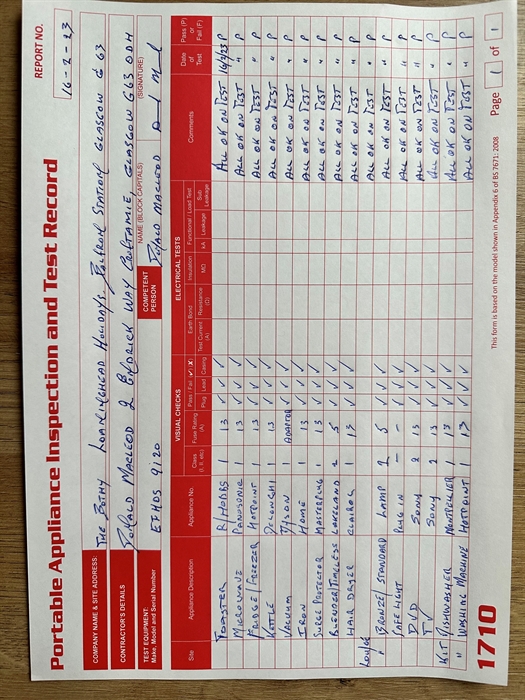 Portable Appliance Inspection and Test Record
REPORT NO.
16-2-23
COMPANY NAME & SITE ADDRESS: THE BOTHY LOANINGHEAD HOLIDAYS, BALFRON STATION GLASGOW G63
CONTRACTOR'S DETAILS MACLEOD 2 ENDRICK WAY CROFTAMIE GLASGOW G63
NAME (BLOCK CAPITALS) (SIGNATURE)
TEST EQUIPMENT: Make, Model and Serial Number ETHOS 9120 COMPETENT PERSON MACLEOD
VISUAL CHECKS ELECTRICAL TESTS
Site Appliance Description Appliance No. Class (I, II, etc.) Fuse Rating (A) Pass / Fail ✓ / X Plug Lead Casing Earth Bond Test Current (A) Resistance (Ω) Insulation MΩ Functional / Load Test kA Leakage Sub Leakage Comments Date of Test Pass (P) or Fail (F)
TOASTER R/HOBBS 1 13 ✓ ✓ ✓ ALL OK ON TEST 16/2/23 P
MICROWAVE PANASONIC 1 13 ✓ ✓ ✓ ALL OK ON TEST " P
FRIDGE/FREEZER HOTPOINT 1 13 ✓ ✓ ✓ ALL OK ON TEST " P
KETTLE DELONGHI 1 13 ✓ ✓ ✓ ALL OK ON TEST " P
VACUUM DYSON ADAPTOR ✓ ✓ ✓ ALL OK ON TEST " P
IRON HOME 1 13 ✓ ✓ ✓ ALL OK ON TEST " P
SURGE PROTECTOR MASTERPLUG 1 13 ✓ ✓ ✓ ALL OK ON TEST " P
BLENDER/TIMELESS LAKELAND 2 5 ✓ ✓ ✓ ALL OK ON TEST " P
HAIR DRYER CLAIROL 1 13 ✓ ✓ ✓ ALL OK ON TEST " P
ALL OK ON TEST " P
BRONZE/STANDARD LAMP 2 5 ✓ ✓ ✓ ALL OK ON TEST " P
SAFE LIGHT PLUG IN - - ✓ ✓ ✓ ALL OK ON TEST " P
DVD SONY 2 13 ✓ ✓ ✓ ALL OK ON TEST " P
TV SONY 2 13 ✓ ✓ ✓ ALL OK ON TEST " P
KIT DISHWASHER MONTPELLIER 1 13 ✓ ✓ ✓ ALL OK ON TEST " P
" WASHING MACHINE HOTPOINT 1 13 ✓ ✓ ✓ ALL OK ON TEST " P
1710
This form is based on the model shown in Appendix 6 of BS 7671: 2008
Page 1 of 1